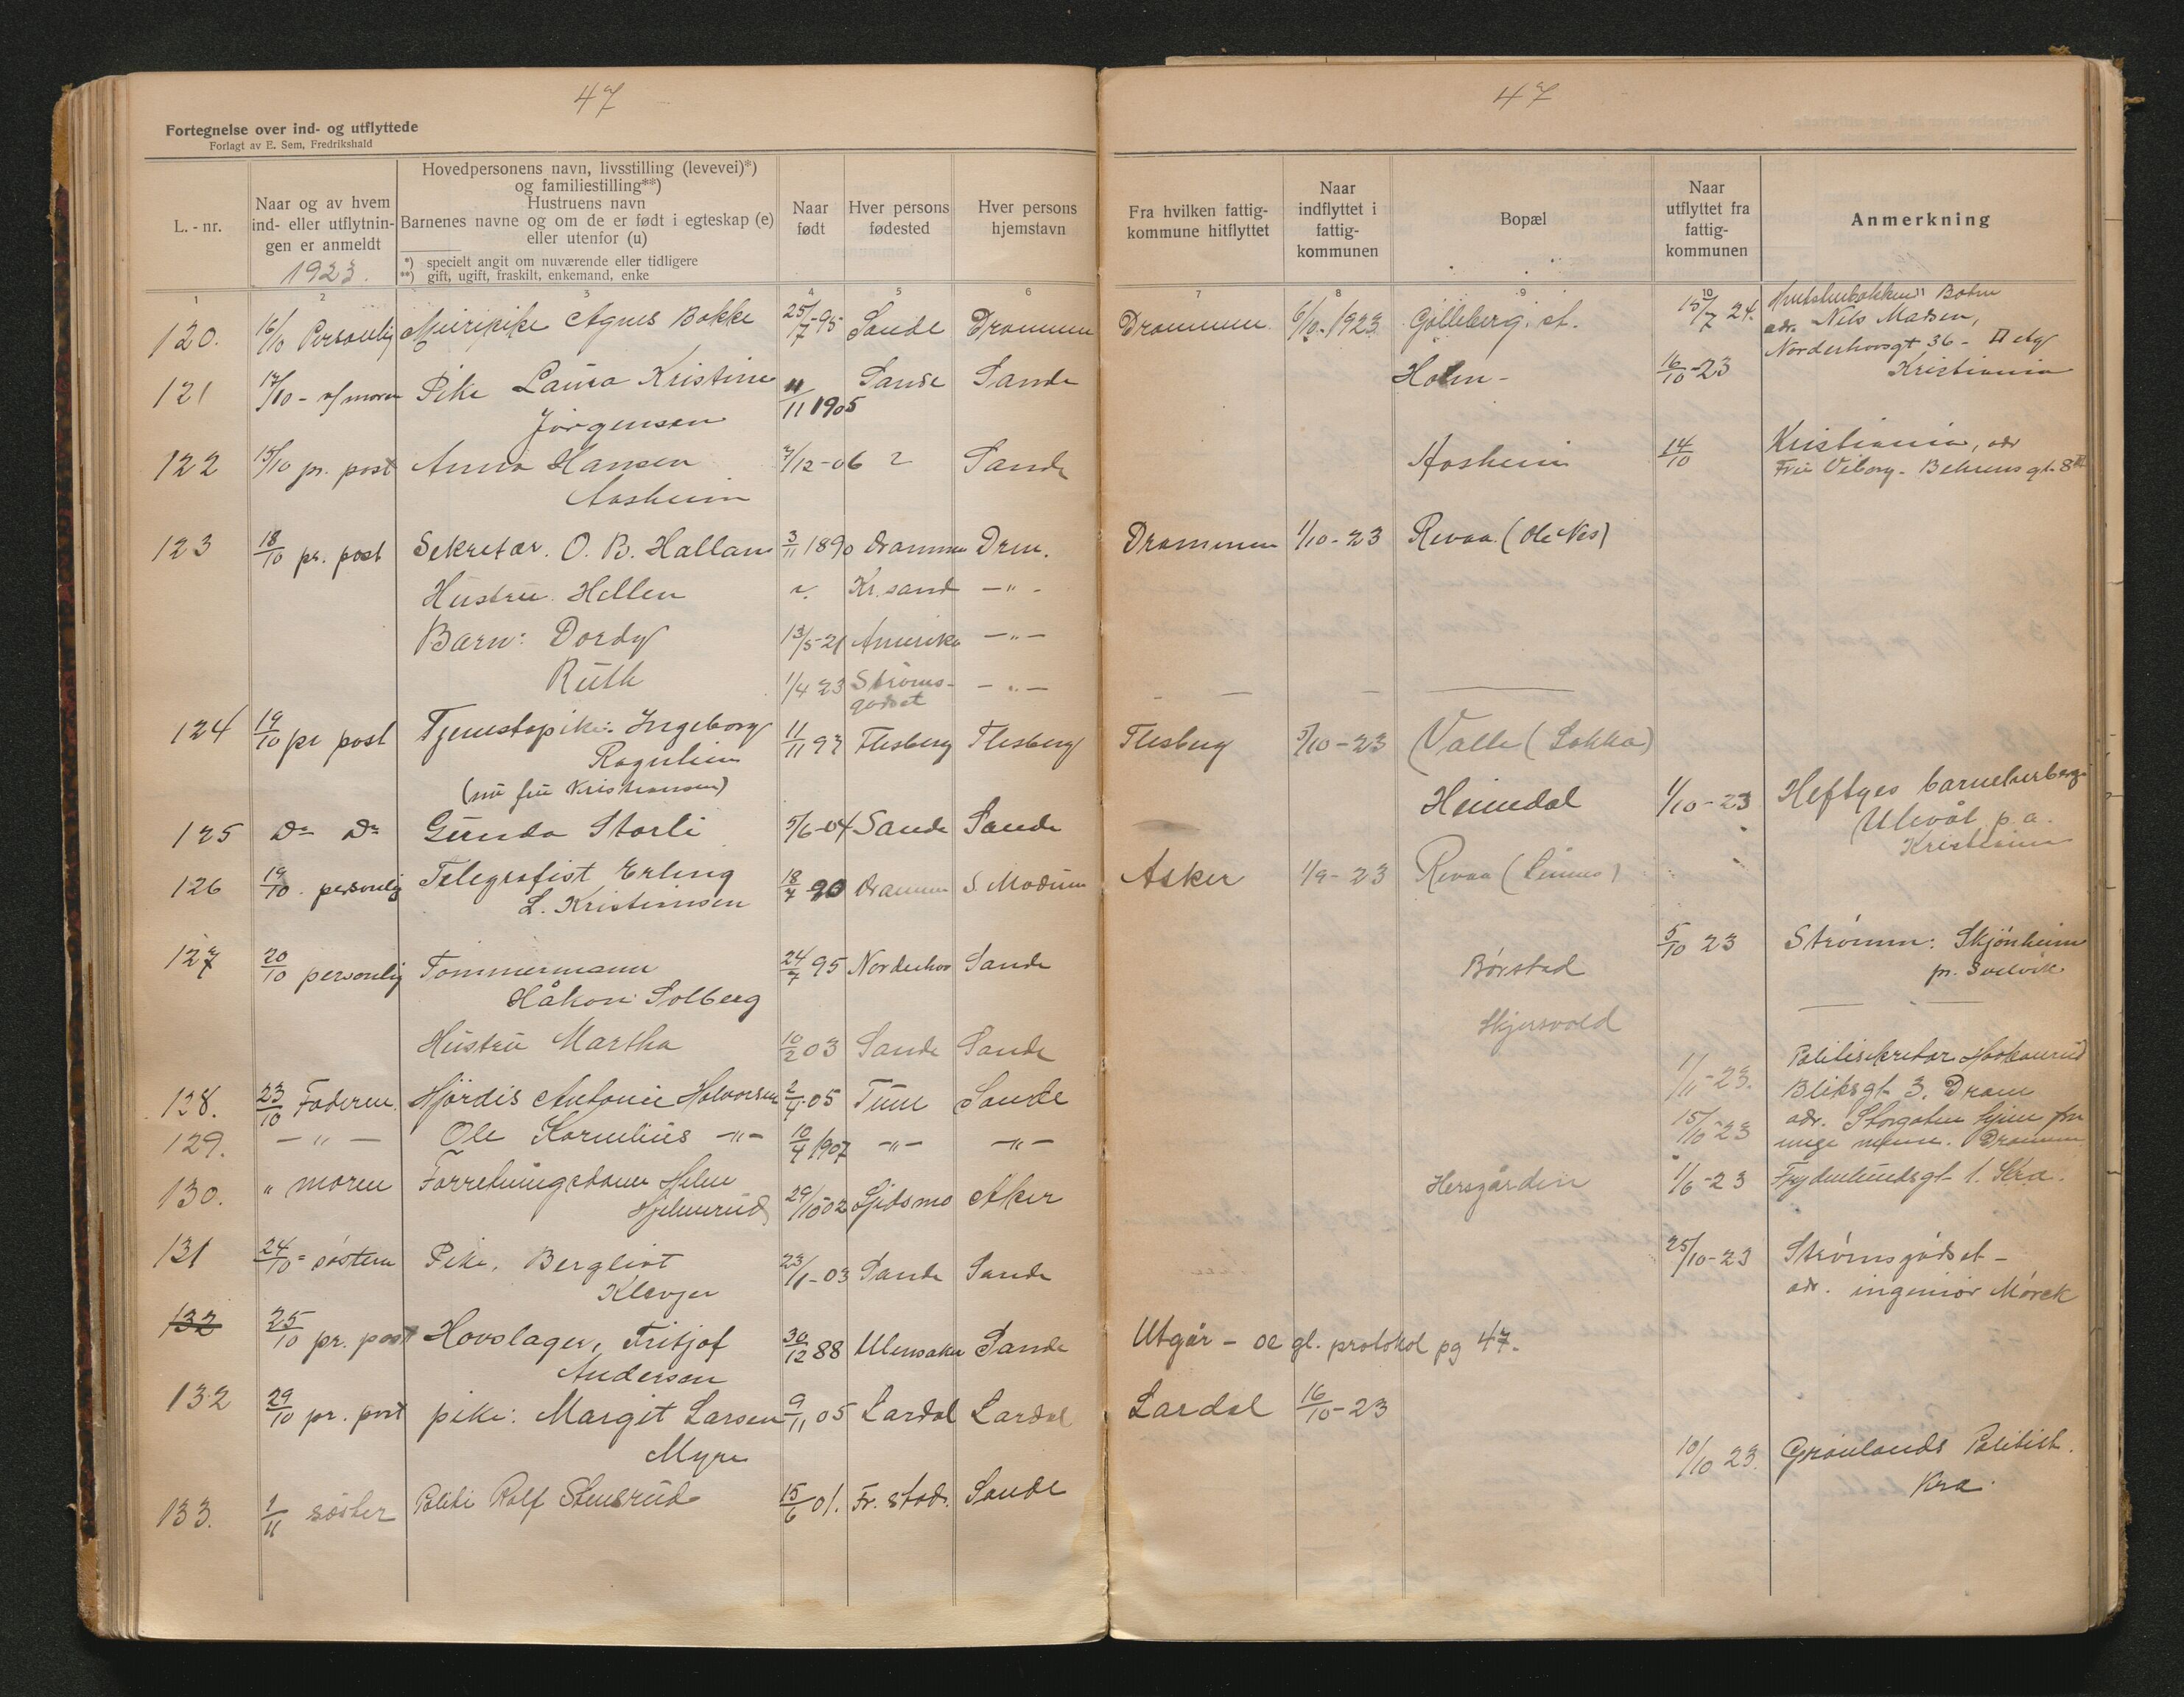 47
Fortegnelse over ind- og utflyttede
Forlagt av E. Sem, Fredrikshald
L. - nr.
Naar og av hvem
ind- eller utflytnin-
gen er anmeldt
1923.
Hovedpersonens navn, livsstilling (levevei)*)
og familiestilling**)
Hustruens navn
Barnenes navne og om de er født i egteskap (e)
eller utenfor (u)
*) specielt angit om nuværende eller tidligere
**) gift, ugift, fraskilt, enkemand, enke
Naar
født
Hver persons
fødested
Hver persons
hjemstavn
1 2 3 4 5 6
120. 16/10 Personlig Meieripike Agnes Bakke 25/7-95 Sande Drammen
121 17/10 - af moren Pike Laura Kristine 11/11 1905 Sande Sande
Jørgensen
122 15/10 pr. post Anna Hansen 7/12-06 ? Sande
Aasheim
123 18/10 pr. post Sekretær. O. B. Hallan 3/11 1890 Drammen Drm.
Hustru. Hellen ? Kr.sand -"-
Barn: Dordy 13/5-21 Amerika -"-
Ruth 1/4 23 Strøms- -"-
godset
124 19/10 pr post Tjenestepike: Ingeborg 11/11 97 Flesberg Flesberg
Rognlien
(nu fru Kristiansen)
125 Do Do Gunda Storli 5/6-04 Sande Sande
126 19/10 personlig Telegrafist Erling 18/7 90 Drammen S. Modum
L. Kristiansen
127 20/10 personlig Tømmermann 24/7 95 Norderhov Sande
Håkon Solberg
Hustru Martha 10/2 03 Sande Sande
128. 23/10 Faderen. Hjørdis Antonie Halvorsen 2/4-05 Tune Sande
129. -"- Ole Kornelius -"- 10/4 1907 -"- -"-
130. " moren Forretningsdame Helene
29/10-02 Aker
131 24/10 = søsteren Pike, Bergliot 23/1-03 Sande Sande
Klevjer
132 25/10 pr. post Hovslager, Fritjof 30/12 88 Ullensaker Sande
Andersen
132 29/10 pr. post pike: Margit Larsen 9/11 05 Lardal Lardal
Myre
133. 1/11 søster Politi Rolf Stensrud 15/6 01. Fr. stad. Sande
47
Fra hvilken fattig-
kommune hitflyttet
Naar
indflyttet i
fattig-
kommunen
Bopæl
Naar
utflyttet fra
fattig-
kommunen
Anmerkning
7 8 9 10
Drammen 6/10-1923 Gølleberg st. 15/7 24.
adr. Nels Madsen,
Norderhovsgt 36 - II etg
Holm - 16/10-23 Kristiania
Aasheim 14/10 Kristiania, adr
Fru Viborg - Behrensgt. 8 III
Drammen 1/10-23 Revaa (Ole Nes)
Flesberg 3/10-23 Valle (Lokka)
Heimdal 1/10-23 Heftyes barneherberge
Ulevål p. a.
Kristiania
Asker 1/9-23 Revaa
Børstad 5/10 23 Strømm: Skjønheim
pr. Svelvik
Skjersvold
1/11-23. Politisekretær Haakonrud
Bliksgt 3. Dram
15/10-23 adr. Storgaten hjem for
unge menn. Drammen
Hersgården 1/6-23 Frydenlundsgt 1. Kra.
25/10-23 Strømsgodset -
adr. ingeniør Mørck
Utgår - se gl. protokol pg 47.
Lardal 16/10-23
10/10 23. Grønlands Politist.
Kra.